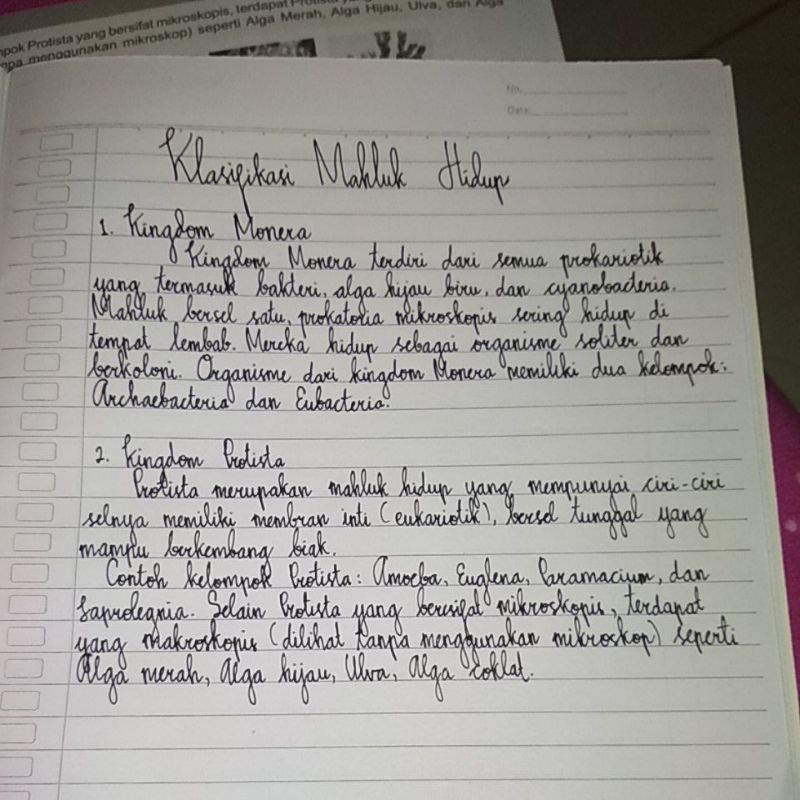 pok Protista yang bersifat mikroskopis, terdapat
npa menggunakan mikroskop) seperti Alga Merah, Alga Hijau, Ulva, dan Alga
No.
Date
Klasifikasi Mahluk Hidup
1. Kingdom Monera
Kingdom Monera terdiri dari semua prokariotik
yang termasuk bakteri, alga hijau biru, dan cyanobacteria.
Mahluk bersel satu, prokatoria mikroskopis sering hidup di
tempat lembab. Mereka hidup sebagai organisme soliter dan
berkoloni. Organisme dari kingdom Monera memiliki dua kelompok:
Archaebacteria dan Eubacteria.
2. Kingdom Protista
Protista merupakan mahluk hidup yang mempunyai ciri-ciri
selnya memiliki membran inti (eukariotik), bersel tunggal yang
mampu berkembang biak.
Contoh kelompok Protista: Amoeba, Euglena, Paramacium, dan
Saprolegnia. Selain Protista yang bersifat mikroskopis, terdapat
yang makroskopis (dilihat tanpa menggunakan mikroskop) seperti
Alga merah, Alga hijau, Ulva, Alga coklat.